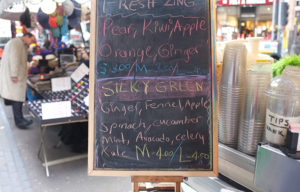 FRESH ZING
Pear, Kiwi, Apple
Orange, Ginger
SILKY GREEN
Ginger, Fennel, Apple
Spinach, cucumber
Mint, Avocado, celery
Kale M-4.00/L-4.50
TIPS
THANK